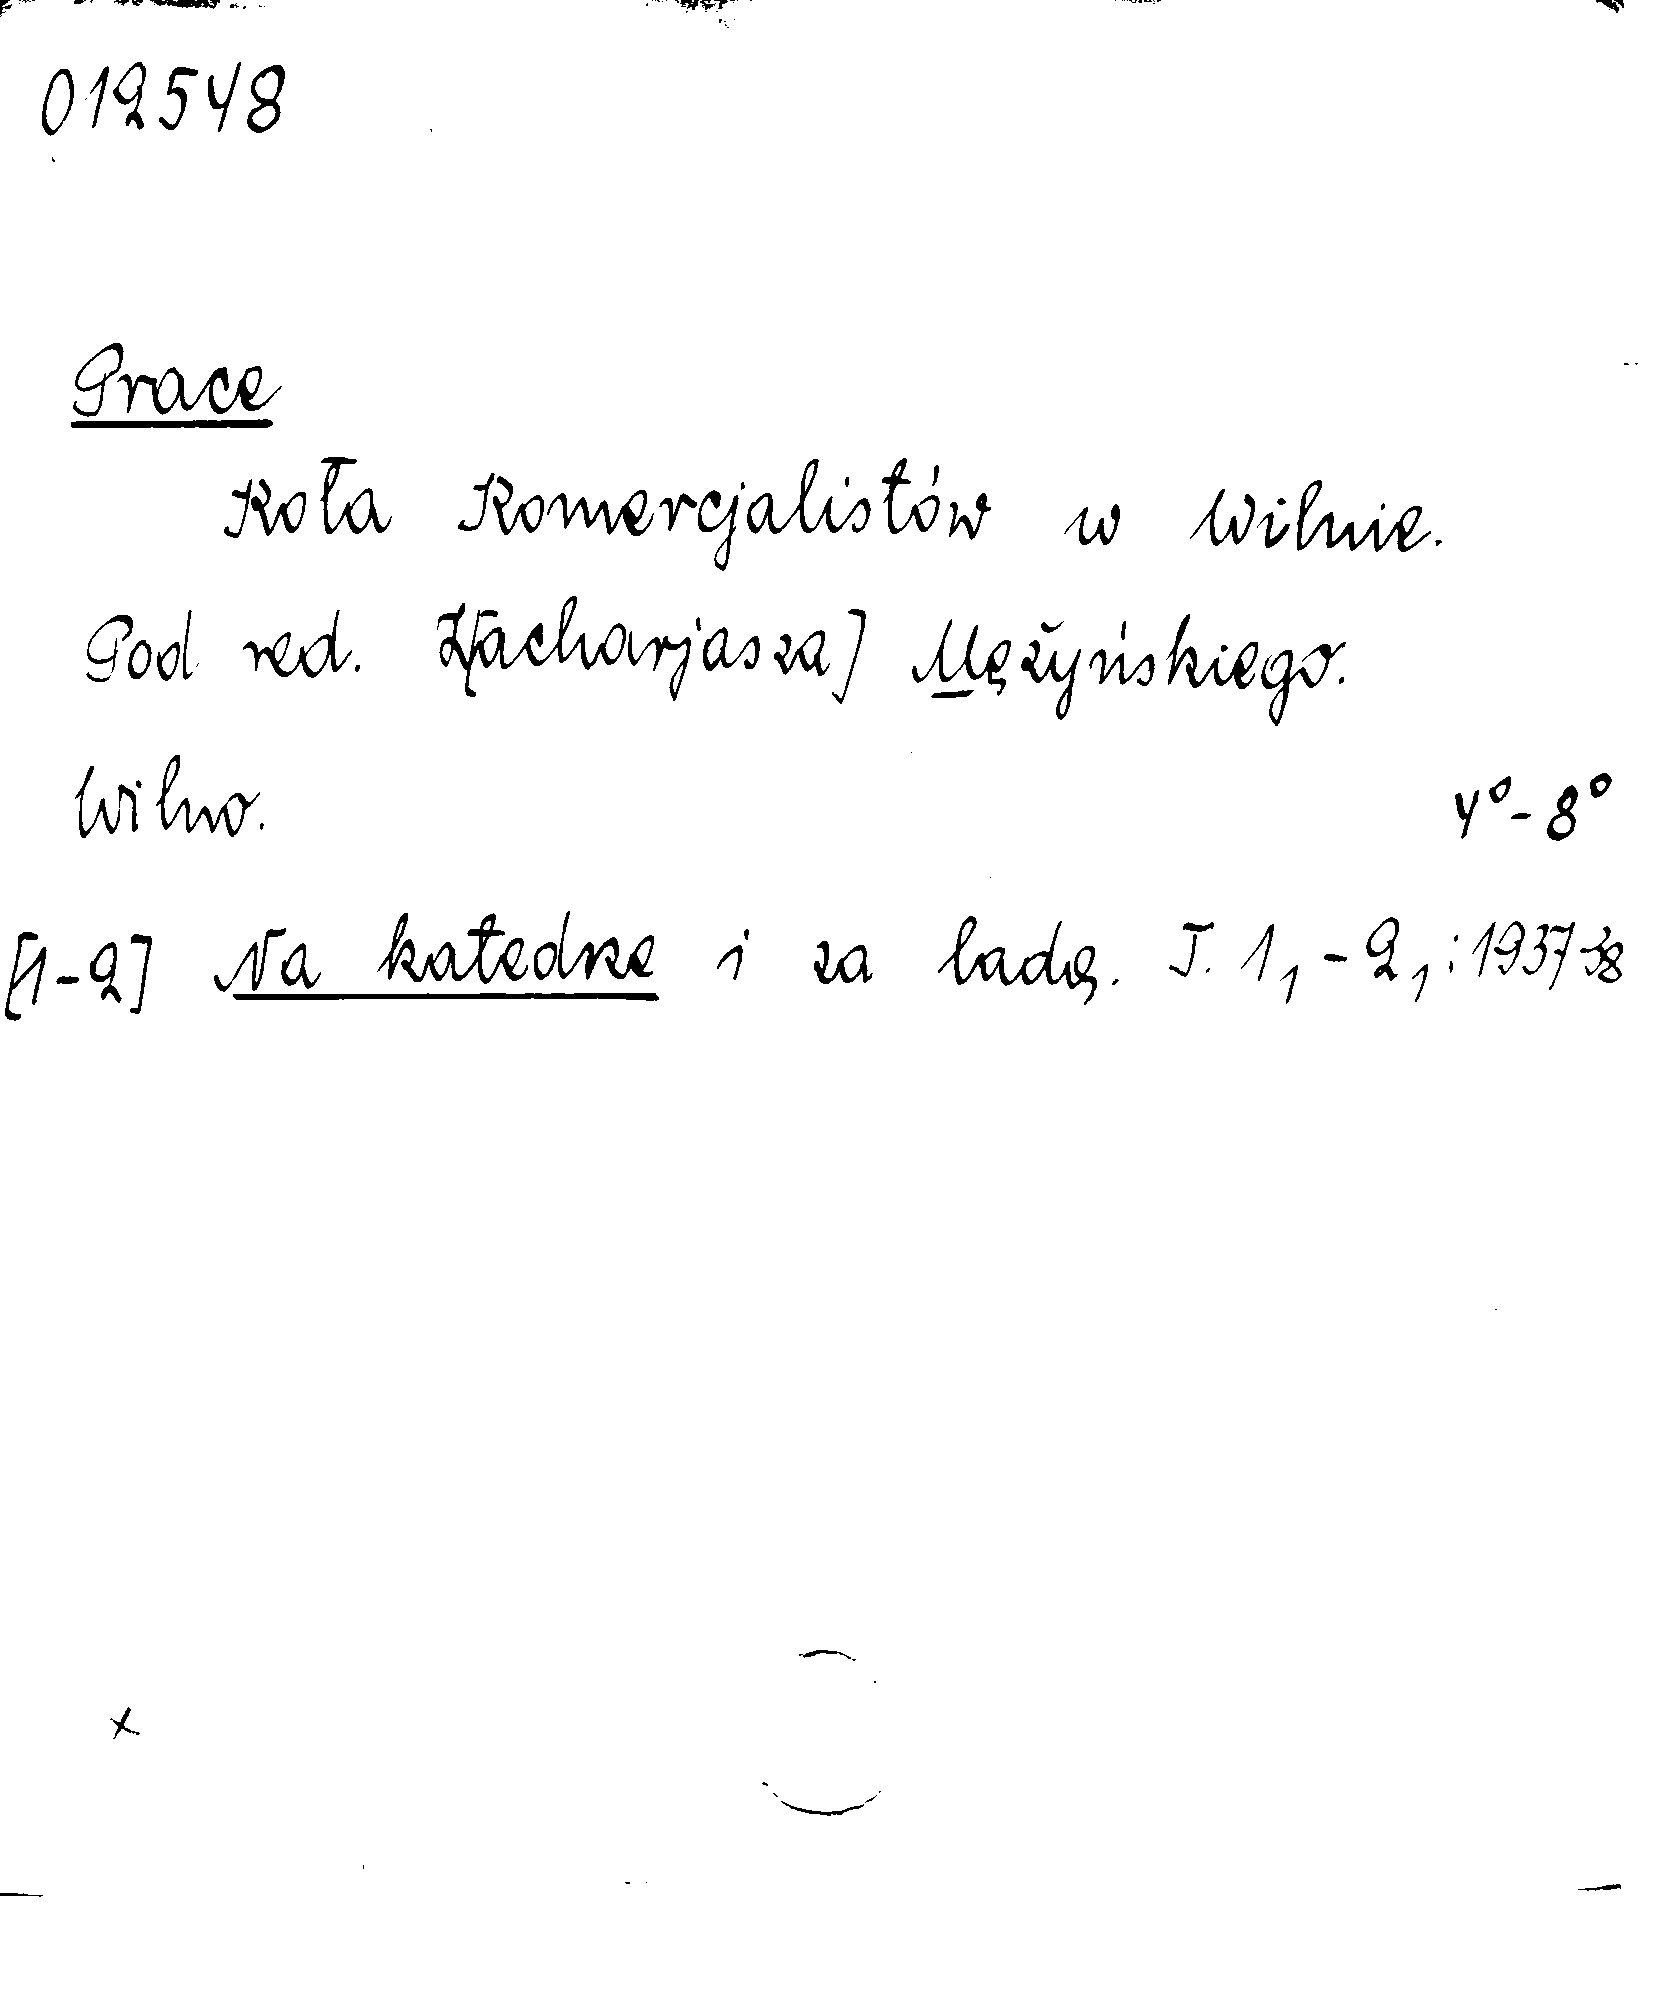 012548
Prace
Koła Komercjalistów w Wilnie.
Pod red. Z[acharjasza] Mężyńskiego.
Wilno. 4°-8°
[1-2] Na katedrze i za ladą. T. 1,1-2,1: 1937-38
x